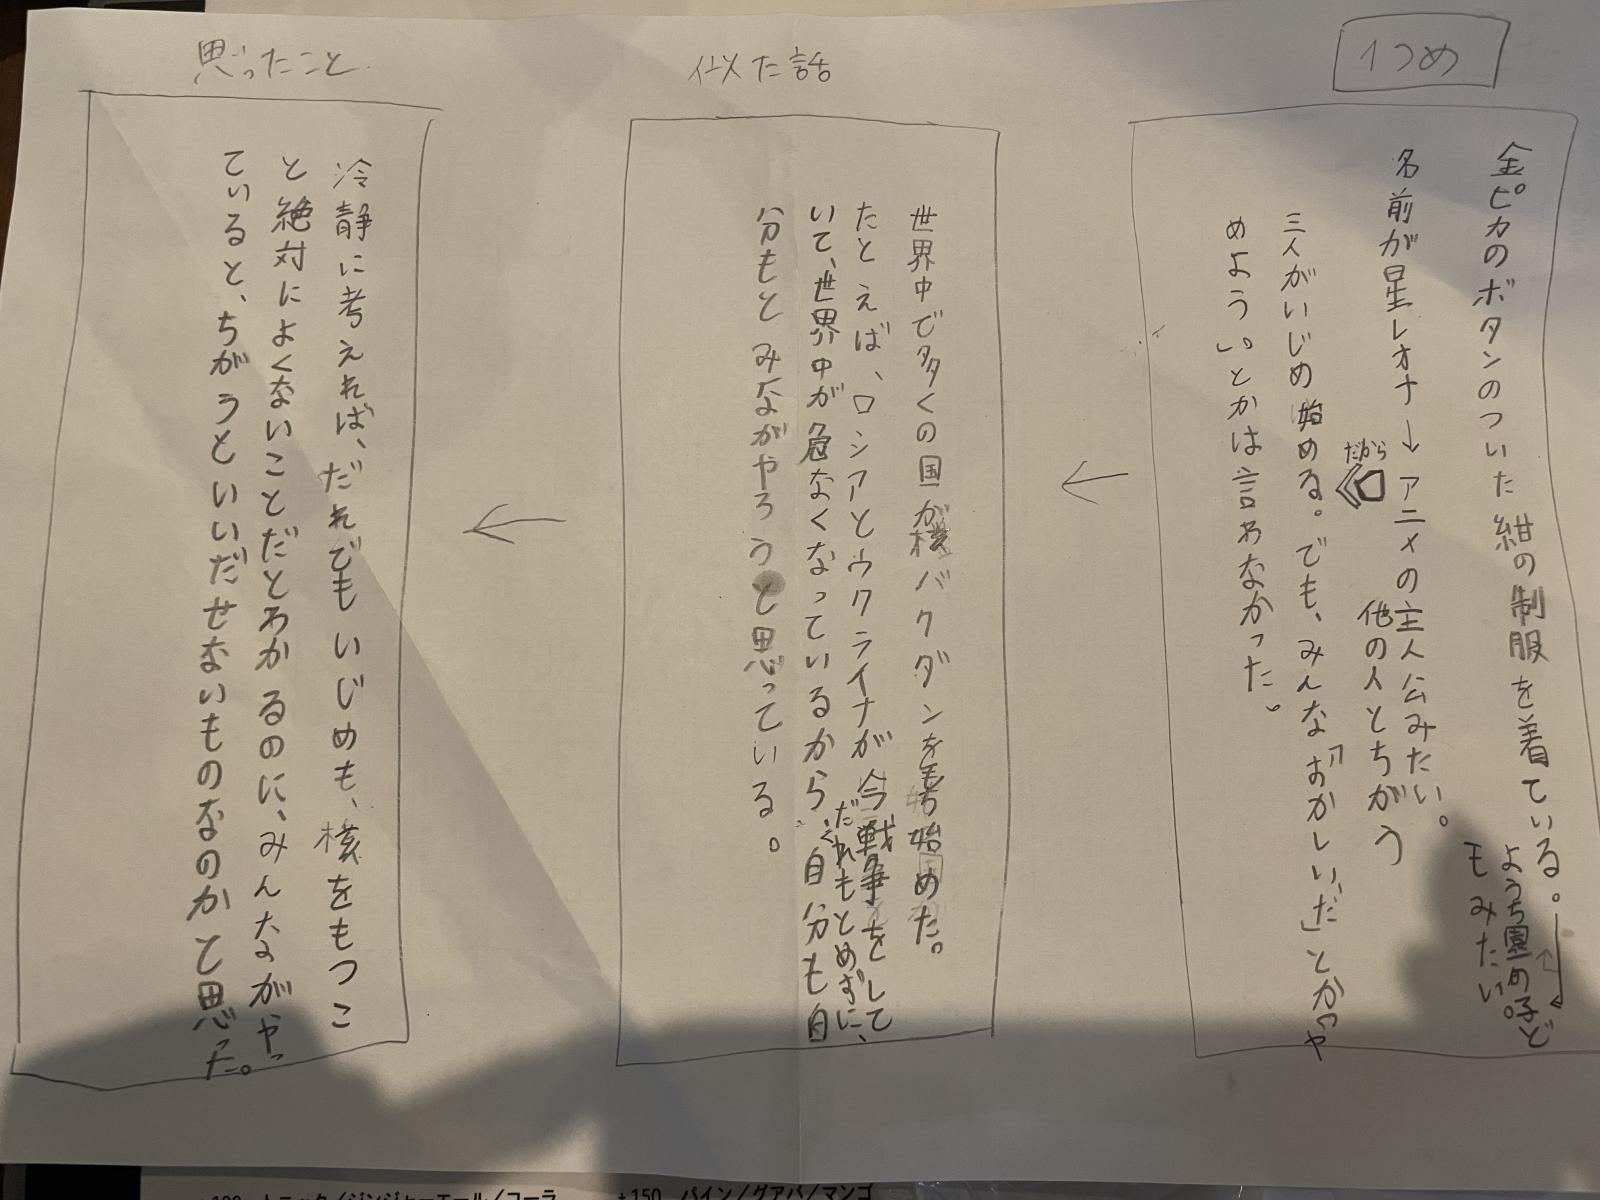 1つめ
金ピカのボタンのついた紺の制服を着ている。
ようち園の子ど
もみたい。
名前が星レオナ→アニメの主人公みたい。
他の人とちがう
だから
三人がいじめ始める。でも、みんな「おかしいだ」とか「や
めよう」。とかは言わなかった。
似た話
世界中で多くの国が核バクダンを持ち始めた。
たとえば、ロシアとウクライナが今戦争をして
だれもとめずに、
いて、世界中が危なくなっているから、自分も自
分もとみながやろうと思っている。
思ったこと
冷静に考えれば、だれでもいじめも、核をもつこ
と絶対によくないことだとわかるのに、みんながやっ
ていると、ちがうといいだせないものなのかと思った。
+150 パイン/グアバ/マンゴ